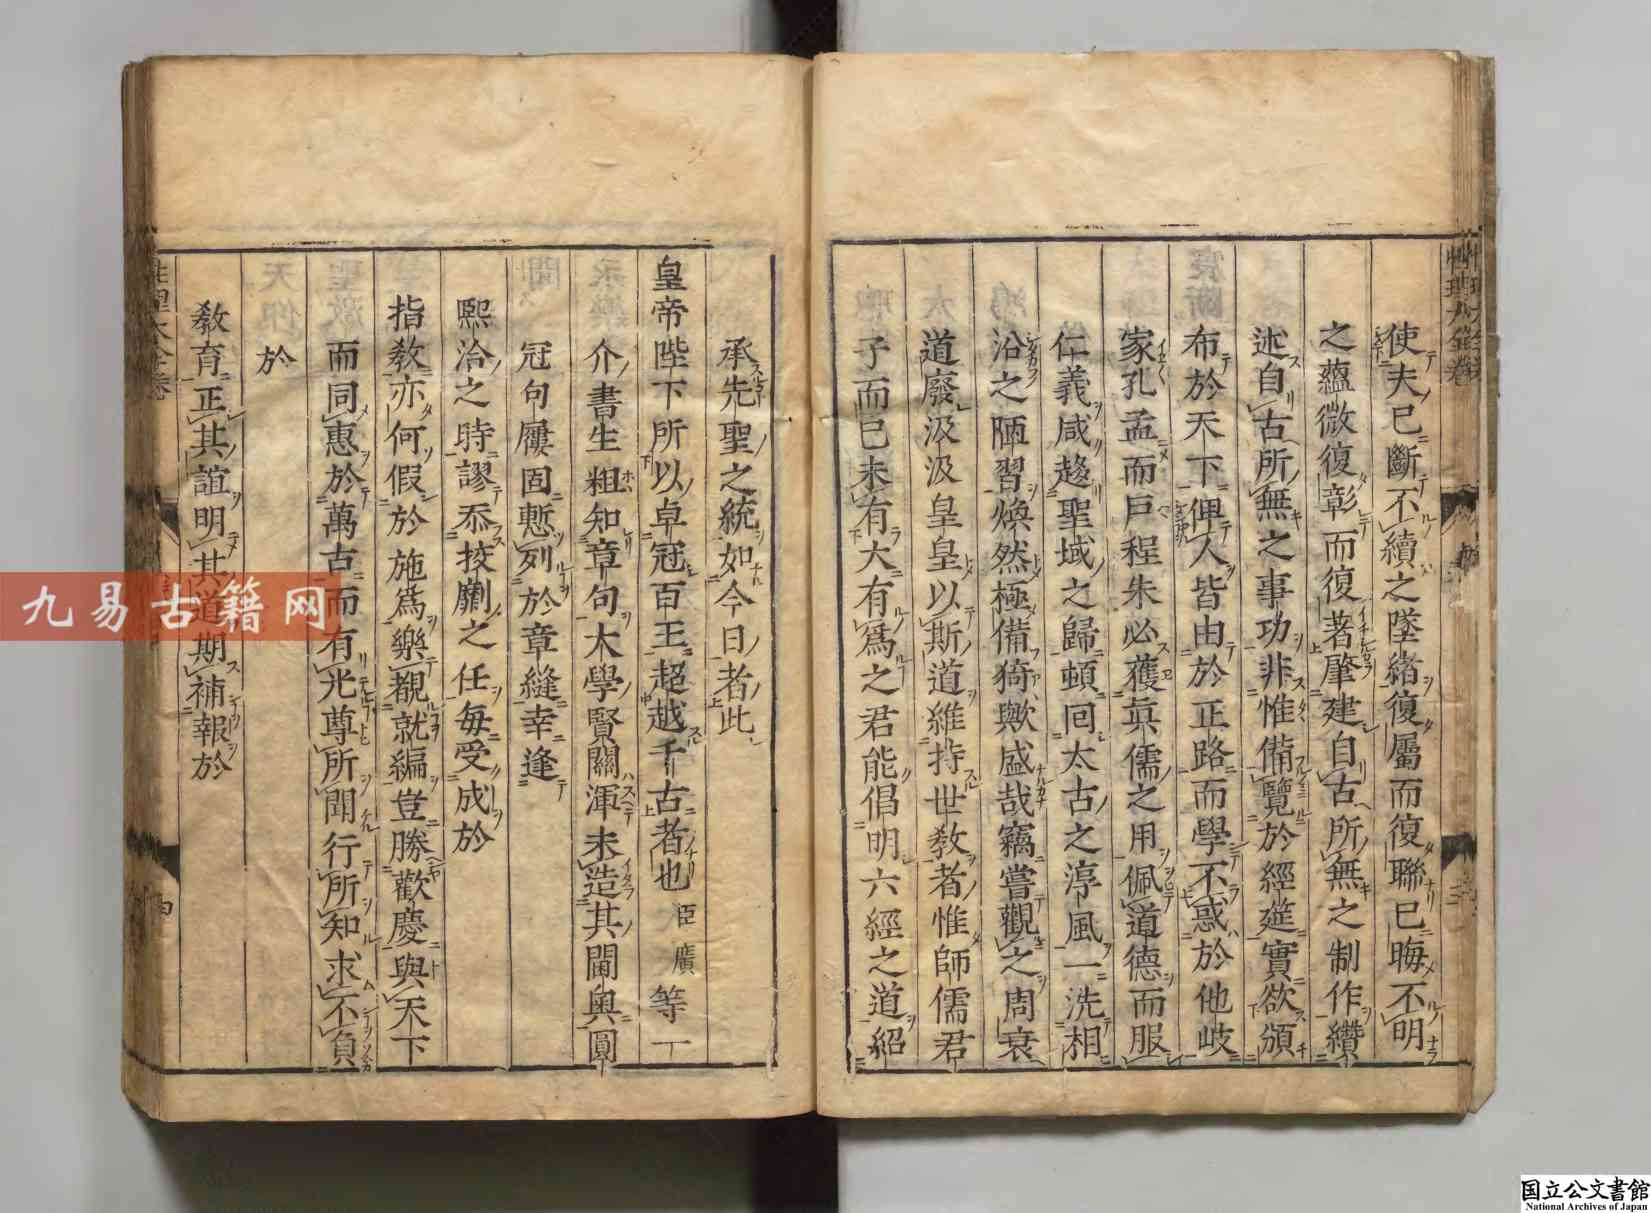 使夫已斷不續之墜緒復屬而復聯已晦不明
之蘊微復彰而復著肇建自古所無之制作纘
述自古所無之事功非惟備覽於經筵實欲頒
布於天下俾人皆由於正路而學不惑於他岐
家孔孟而戶程朱必獲眞儒之用佩道德而服
仁義咸趍聖域之歸頓回太古之淳風一洗相
沿之陋習煥然極備猗歟盛哉竊嘗觀之周衰
道廢汲汲皇皇以斯道維持世教者惟師儒君
子而已未有大有爲之君能倡明六經之道紹
承先聖之統如今日者此
皇帝陛下所以卓冠百王超越千古者也臣廣等一
介書生粗知章句大學賢關渾未造其閫奧圜
冠句屨固慙列於章縫幸逢
熙洽之時謬忝挍劘之任每受成於
指教亦何假於施爲樂覩就編豈勝歡慶與天下
而同惠於萬古而有光尊所聞行所知求不負
於
教育正其誼明其道期補報於
九易古籍网
国立公文書館
National Archives of Japan